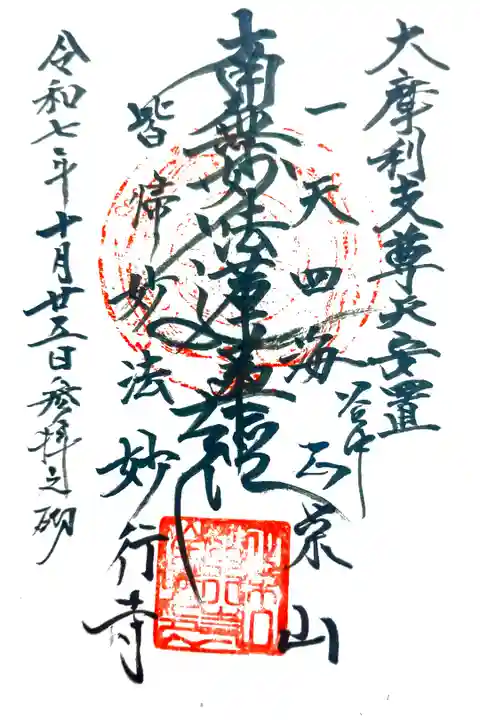 大摩利支尊天安置
谷中
一天四海 正栄山
南無妙法蓮華経
皆帰妙法 妙行寺
令和七年十月廿五日参拝之砌